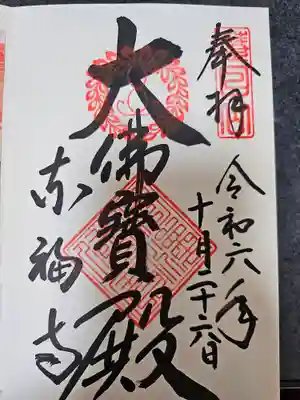 奉拝
令和六年
十月二十六日
大佛寳殿
東福寺